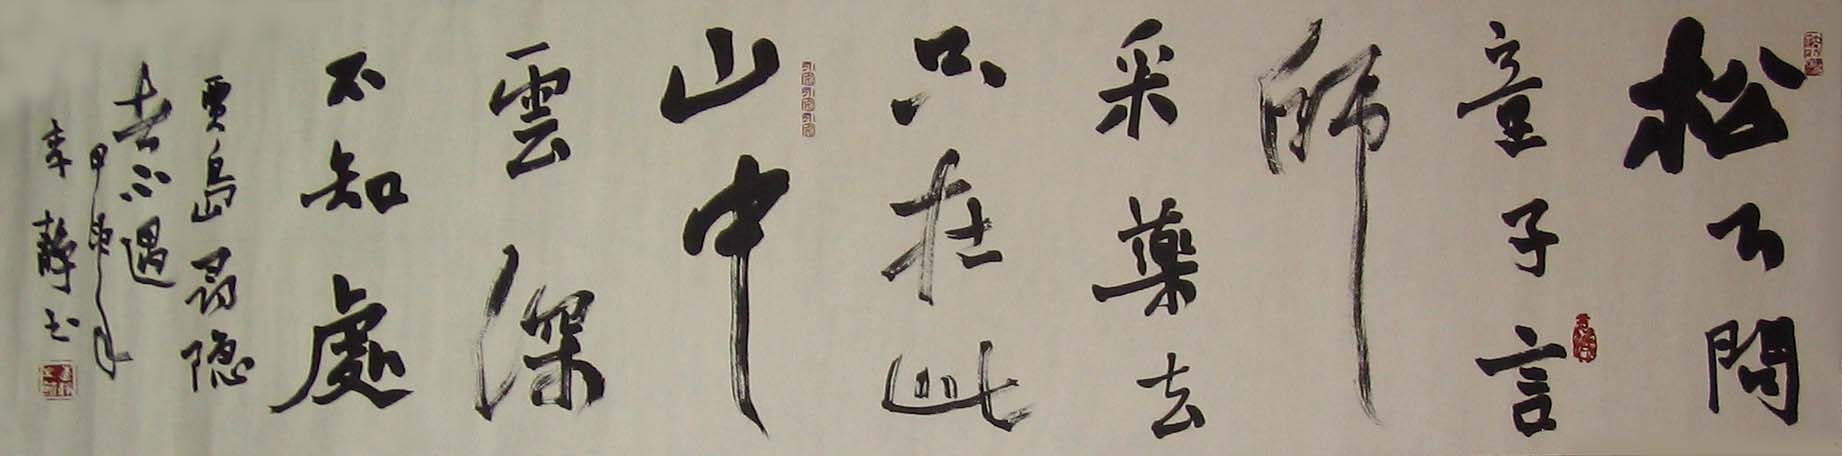 松下問
童子言
師
采藥去
只在此
山中
雲深
不知處
賈島尋隐
者不遇
李靜书